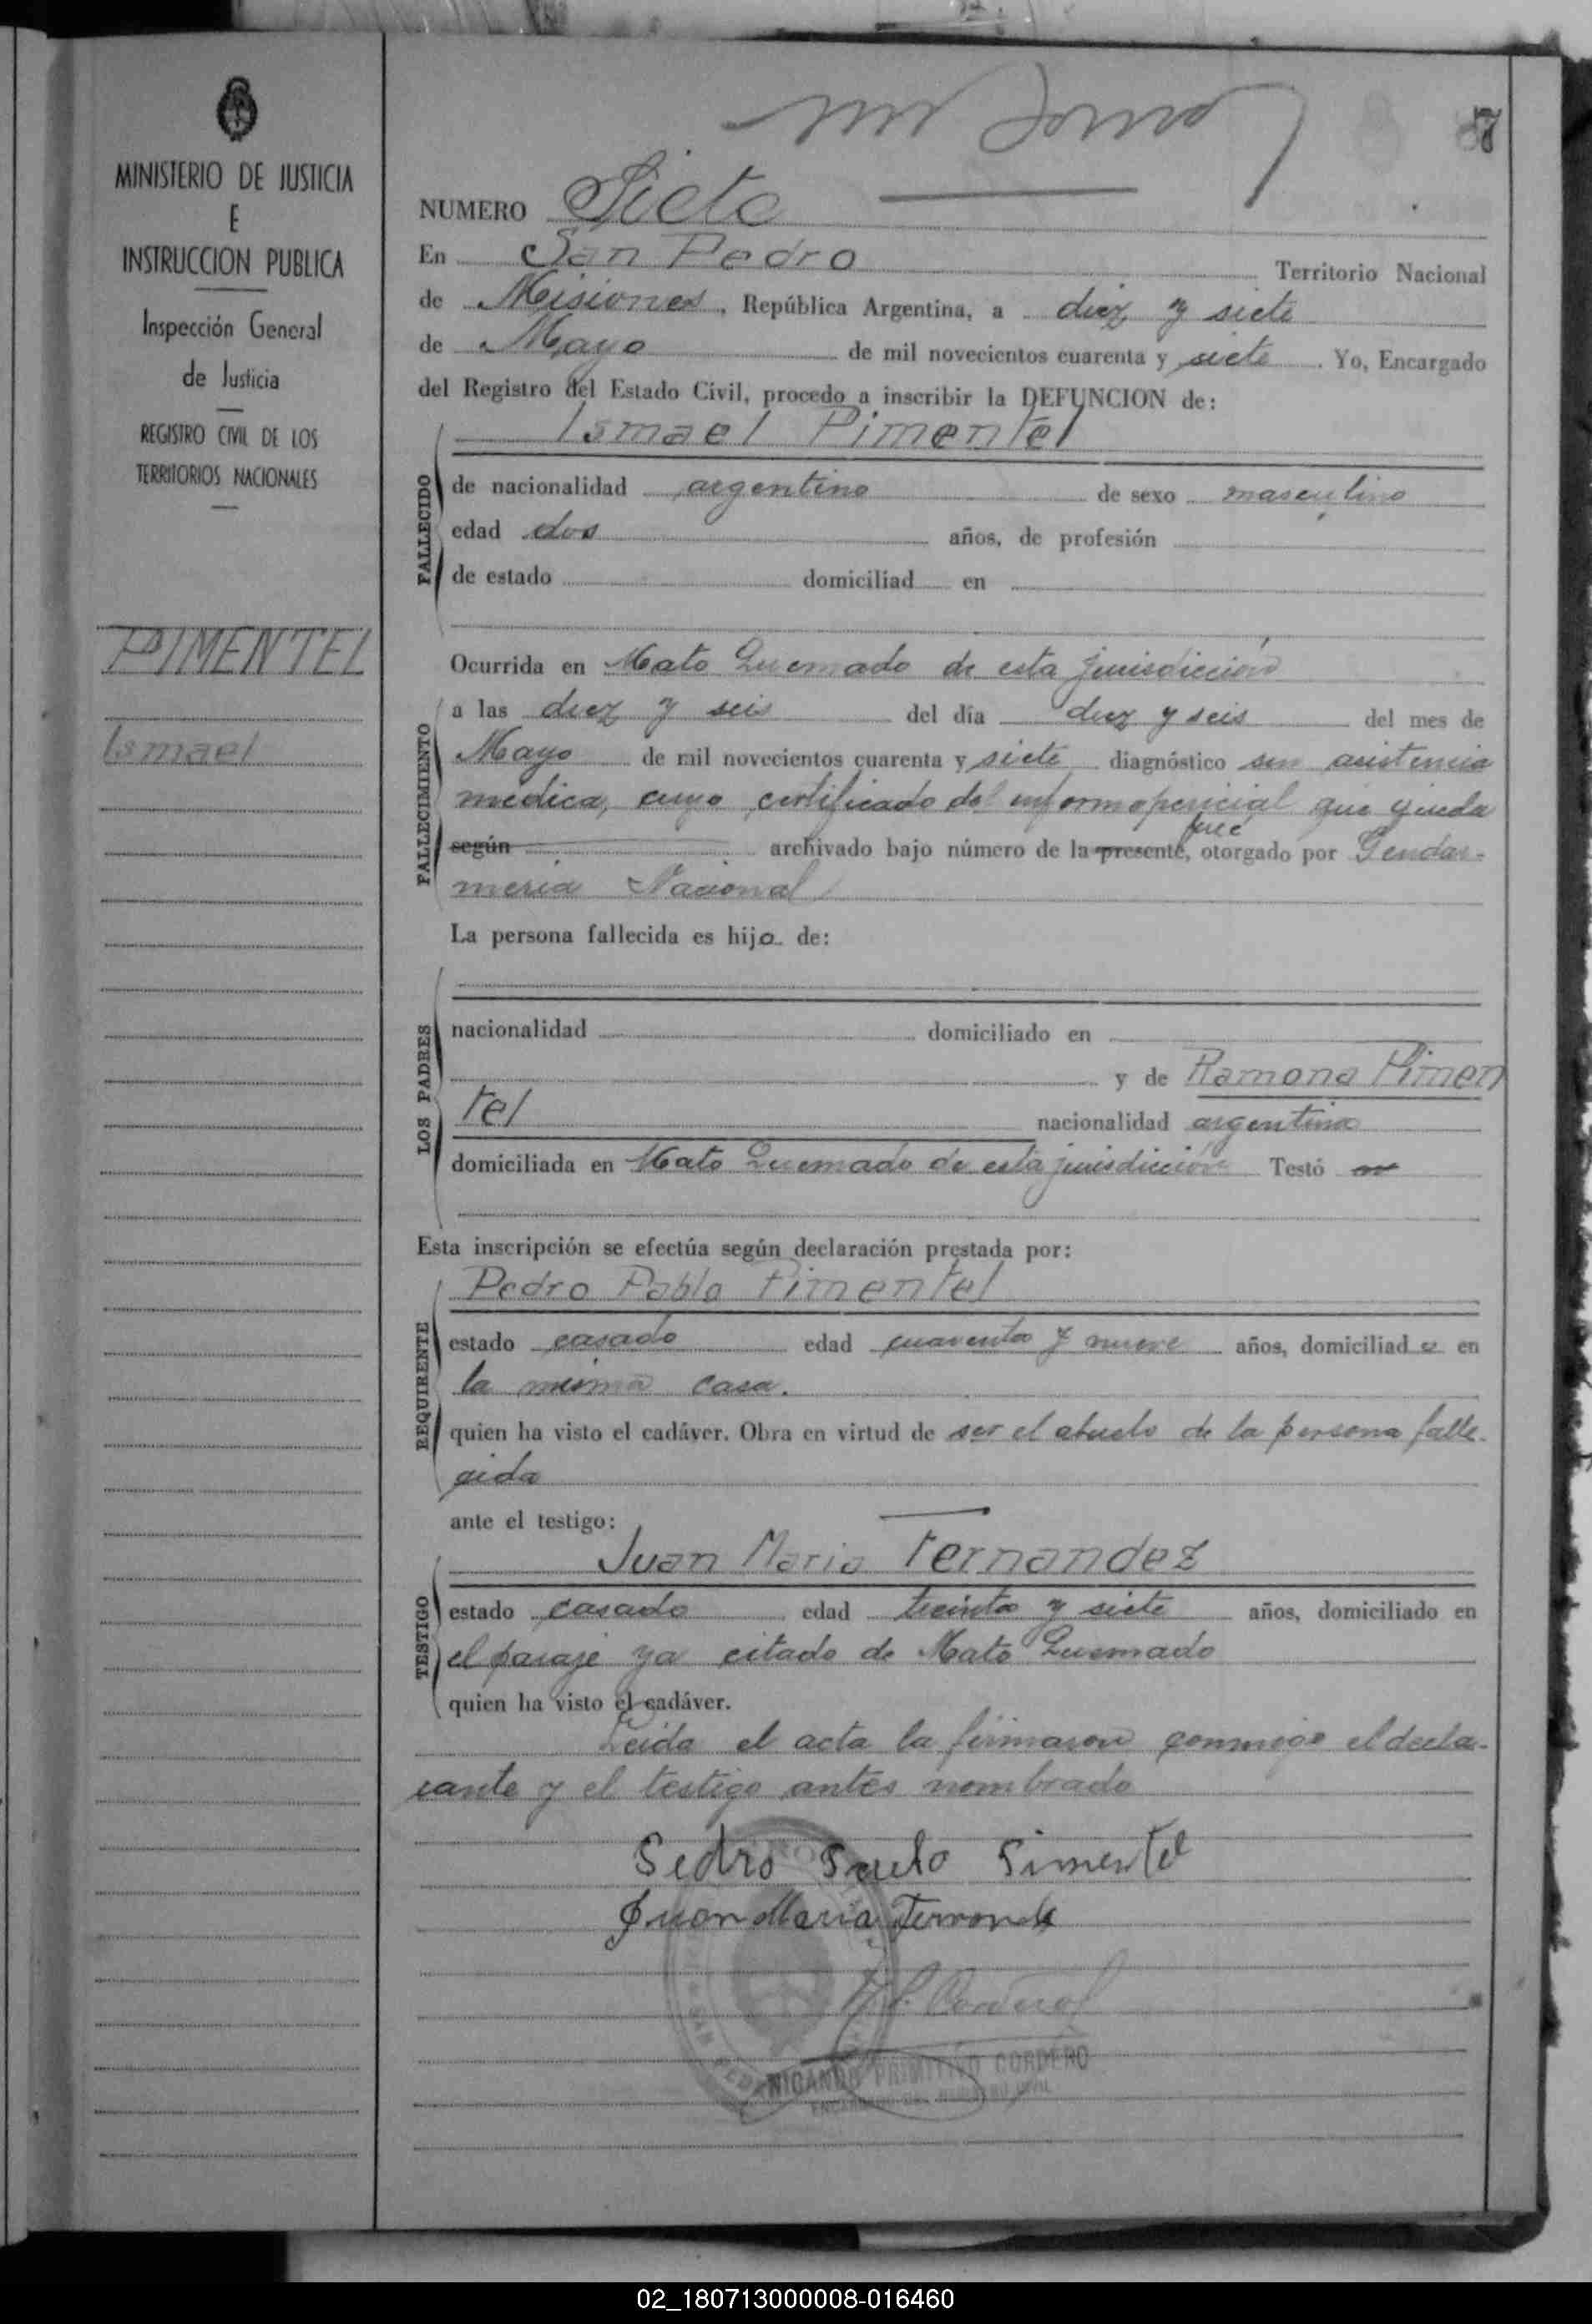 7
MINISTERIO DE JUSTICIA
E
INSTRUCCION PUBLICA
Inspección General
de Justicia
REGISTRO CIVIL DE LOS
TERRITORIOS NACIONALES
PIMENTEL
Ismael
NUMERO Siete
En San Pedro Territorio Nacional
de Misiones, República Argentina, a diez y siete
de Mayo de mil novecientos cuarenta y siete. Yo, Encargado
del Registro del Estado Civil, procedo a inscribir la DEFUNCION de:
Ismael Pimentel
FALLECIDO
de nacionalidad argentino de sexo masculino
edad dos años, de profesión
de estado domiciliad en
FALLECIMIENTO
Ocurrida en Mato Quemado de esta jurisdicción
a las diez y seis del día diez y seis del mes de
Mayo de mil novecientos cuarenta y siete diagnóstico sin asistencia
medica, cuyo certificado del informe pericial que queda
según archivado bajo número de la presente, fue otorgado por Gendar-
meria Nacional
La persona fallecida es hijo de:
LOS PADRES
nacionalidad domiciliado en
y de Ramona Pimen
tel nacionalidad argentina
domiciliada en Mato Quemado de esta jurisdicción Testó
Esta inscripción se efectúa según declaración prestada por:
REQUIRENTE
Pedro Pablo Pimentel
estado casado edad cuarenta y nueve años, domiciliado en
la misma casa.
quien ha visto el cadáver. Obra en virtud de ser el abuelo de la persona falle-
cida
ante el testigo:
TESTIGO
Juan Maria Fernandez
estado casado edad treinta y siete años, domiciliado en
el paraje ya citado de Mato Quemado
quien ha visto el cadáver.
Leida el acta la firmaron conmigo el decla-
rante y el testigo antes nombrado
Pedro Paulo Pimentel
Juan Maria Fernande
Cordero
NICANOR PRIMITIVO CORDERO
ENCARGADO DEL REGISTRO CIVIL
02_180713000008-016460